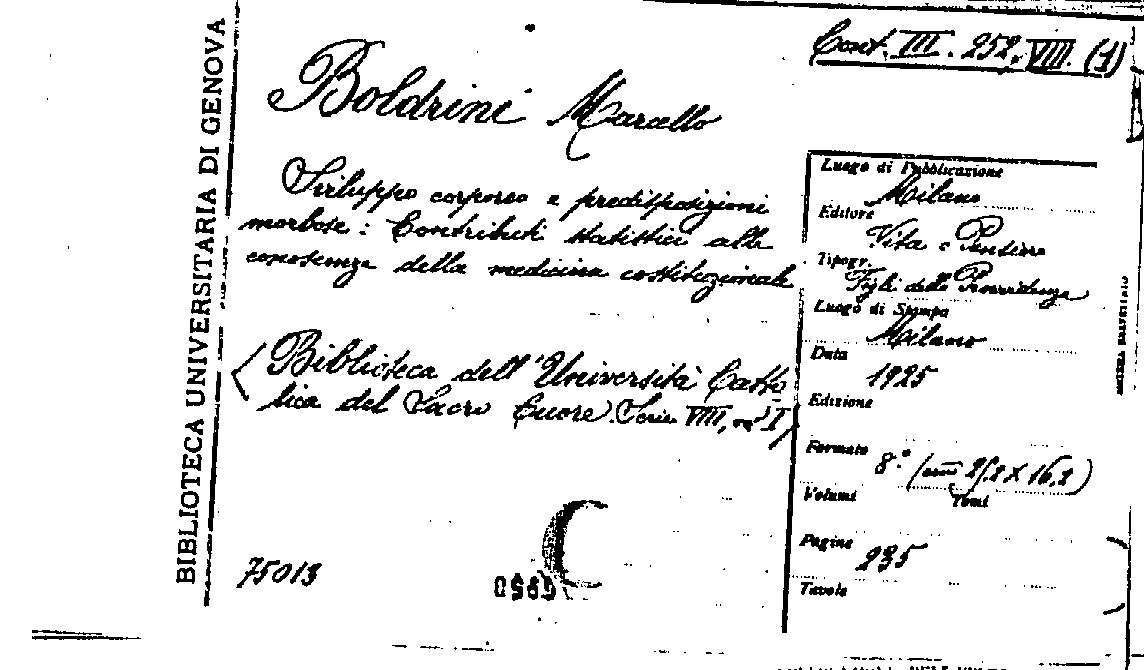 BIBLIOTECA UNIVERSITARIA DI GENOVA
Cont. III. 252. VIII. (1)
Boldrini Marcello
Sviluppo corporeo e predisposizioni
morbose: Contributi statistici alla
conoscenza della medicina costituzionale
(Biblioteca dell'Università Catto
lica del Sacro Cuore. Serie VIII, vol I)
75013
Luogo di Pubblicazione
Milano
Editore
Vita e Pensiero
Tipogr.
Figli della Provvidenza
Luogo di Stampa
Milano
Data
1925
Edizione
Formato 8.° (cm 25,2 X 16,2)
Volumi Tomi
Pagine 235
Tavole